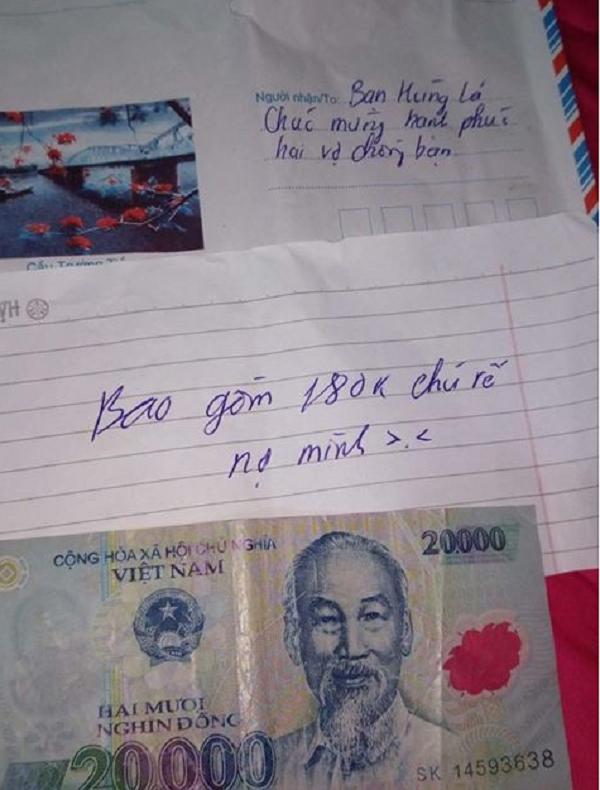 Người nhận/To: Bạn Hùng Lá
Chúc mừng hạnh phúc
hai vợ chồng bạn
Cầu Trường Tiền
HẢI
Bao gồm 180K chú rể
nợ mình >.<
CỘNG HÒA XÃ HỘI CHỦ NGHĨA
VIỆT NAM
20.000
HAI MƯƠI
NGHÌN ĐỒNG
20.000
SK 14593638